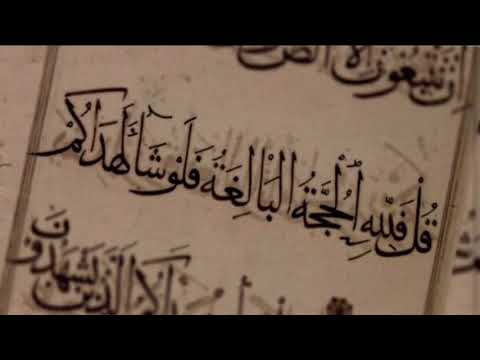 اِنْ تَتَّبِعُونَ اِلَّا
قُلْ فَلِلّٰهِ الْحُجَّةُ الْبَالِغَةُ فَلَوْ شَآءَ لَهَدَاكُمْ
الَّذِينَ يَشْهَدُونَ